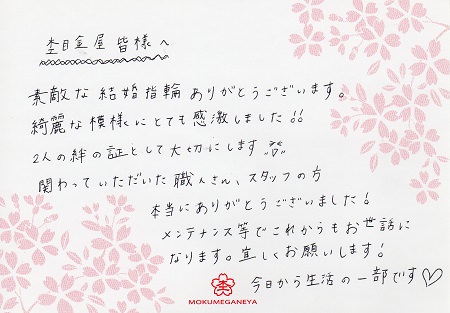 杢目金屋 皆様へ
素敵な結婚指輪ありがとうございます。
綺麗な模様にとても感激しました!!
2人の絆の証として大切にします
関わっていただいた職人さん、スタッフの方
本当にありがとうございました!
メンテナンス等でこれからもお世話に
なります。宜しくお願いします!
今日から生活の一部です♡
杢
MOKUMEGANEYA